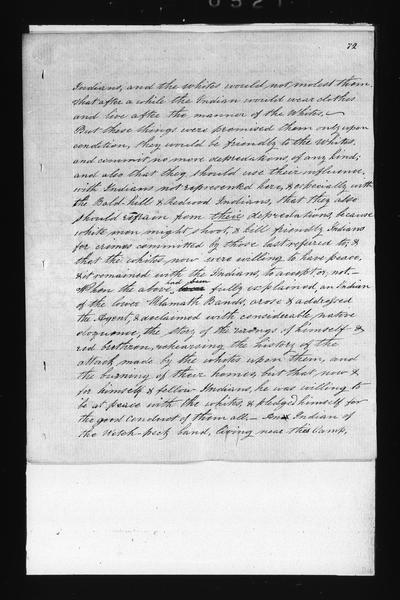 72
Indians, and the whites would not molest them,
that after a while the Indian would wear clothes
and live after the manner of the Whites.
But these things were promised them only upon
condition, they would be friendly to the Whites,
and commit no more depredations, of any kind;
and also that they should use their influence,
with Indians not represented here, & especially with
the Bald hill & Redwood Indians, that they also
should refrain from their depredations, because
white men might shoot, & kill friendly Indians
for crimes committed by those last refered to; &
that the whites, now were willing to have peace,
& it remained with the Indians, to accept or, not.—
When the above, had been fully explained, an Indian
of the lower Klamath Bands, arose & addressed
the Agent, & declaimed with considerable native
eloquence, the story of the wrongs of himself &
red brethren, rehearsing the history of the
attack made by the whites upon them, and
the burning of their homes, but that now &
for himself & fellow Indians, he was willing to
be at peace with the whites & pledged himself for
the good conduct of them all.— An Indian of
the Witch-peck band, living near this Camp,